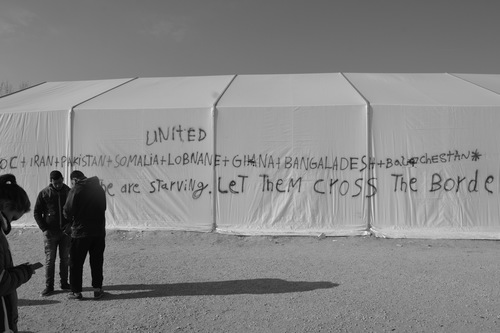 UNITED
OC + IRAN + PAKISTAN + SOMALIA + LOBNANE + GHANA + BANGALADESH + BALOTCHESTAN *
be are starving. LeT Them cross The Borde